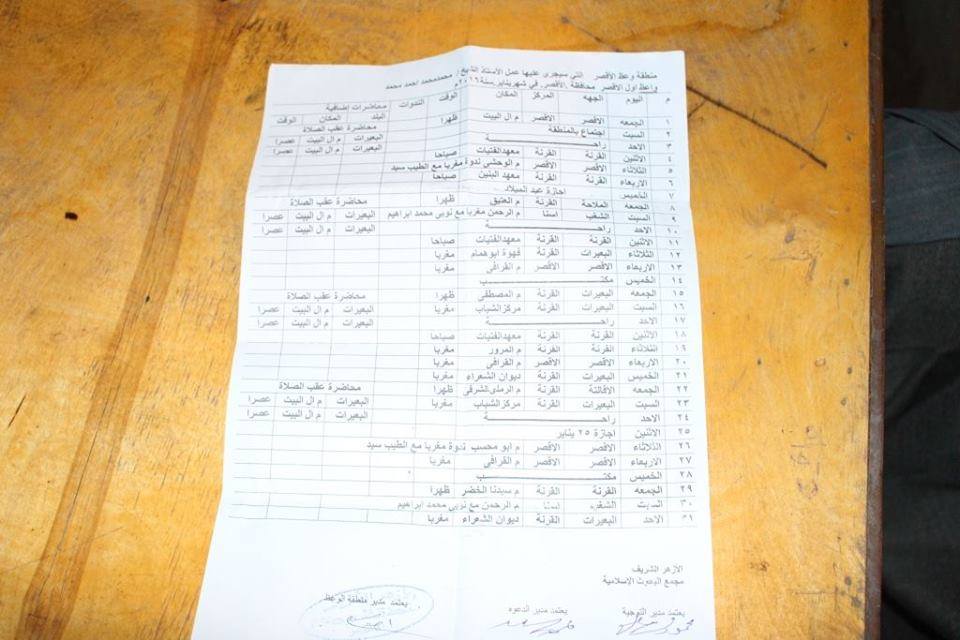 منطقة وعظ الأقصر التي سيجرى عليها عمل الأستاذ الشيخ / محمدمحمد احمد محمد
واعظ اول الاقصر محافظة الأقصر. في شهريناير.سنة٢٠١٦م
م اليوم الجهه المركز المكان الوقت الندوات محاضرات إضافية
البلد المكان الوقت
١ الجمعه الاقصر الاقصر م ال البيت ظهرا محاضرة عقب الصلاة
٢ السبت اجتماع بالمنطقة البعيرات م ال البيت عصرا
٣ الاحد راحـــة البعيرات م ال البيت عصرا
٤ الاثنين القرنة القرنة معهدالفتيات صباحا
٥ الثلاثاء الأقصر الأقصر م الوحشى ندوة مغربا مع الطيب سيد
٦ الاربعاء القرنة القرنة معهد البنين صباحا
٧ الخميس اجازة عيد الميلاد
٨ الجمعه الملاحة القرنة م العتيق ظهرا محاضرة عقب الصلاة
٩ السبت الشغب اسنا م الرحمن مغربا مع نوبى محمد ابراهيم البعيرات م ال البيت عصرا
١٠ الاحد راحـــة البعيرات م ال البيت عصرا
١١ الاثنين القرنة القرنة معهدالفتيات صباحا
١٢ الثلاثاء البعيرات القرنة قهوة ابوهمام مغربا
١٣ الاربعاء الأقصر الأقصر م القرافى مغربا
١٤ الخميس مكتـــب
١٥ الجمعه البعيرات القرنة م المصطفى ظهرا محاضرة عقب الصلاة
١٦ السبت البعيرات القرنة مركزالشباب مغربا البعيرات م ال البيت عصرا
١٧ الاحد راحـــة البعيرات م ال البيت عصرا
١٨ الاثنين القرنة القرنة معهدالفتيات صباحا
١٩ الثلاثاء القرنة القرنة م المرور مغربا
٢٠ الاربعاء الأقصر الأقصر م القرافى مغربا
٢١ الخميس البعيرات القرنة ديوان الشعراء مغربا
٢٢ الجمعه الاقالتة القرنة م الرملى الشرقى ظهرا محاضرة عقب الصلاة
٢٣ السبت البعيرات القرنة مركزالشباب مغربا البعيرات م ال البيت عصرا
٢٤ الاحد راحـــة البعيرات م ال البيت عصرا
٢٥ الاثنين اجازة ٢٥ يناير
٢٦ الثلاثاء الأقصر الأقصر م ابو محسب ندوة مغربا مع الطيب سيد
٢٧ الاربعاء الأقصر الأقصر م القرافى مغربا
٢٨ الخميس مكتـــب
٢٩ الجمعه القرنة القرنة م سيدنا الخضر ظهرا
٣٠ السبت الشغب اسنا م الرحمن مع نوبى محمد ابراهيم
٣١ الاحد البعيرات القرنة ديوان الشعراء مغربا
الازهر الشريف
مجمع البحوث الاسلامية
يعتمد مدير التوجية يعتمد مدير الدعوه يعتمد مدير منطقة الوعظ